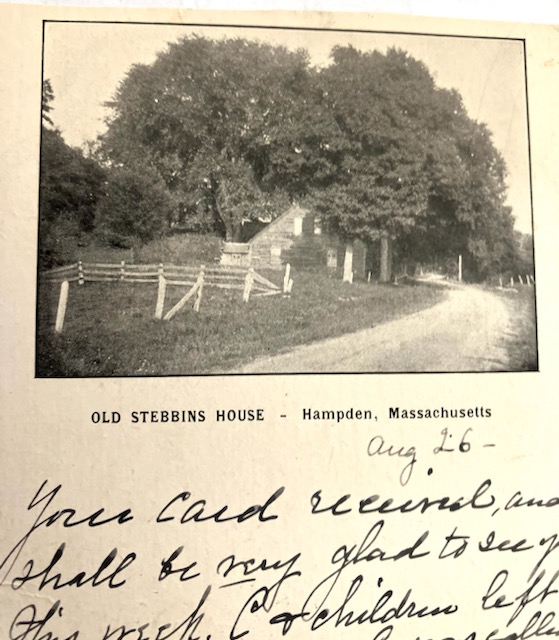 OLD STEBBINS HOUSE - Hampden, Massachusetts
Aug 26 -
Your card received, and
shall be very glad to see y
this week. C & children left